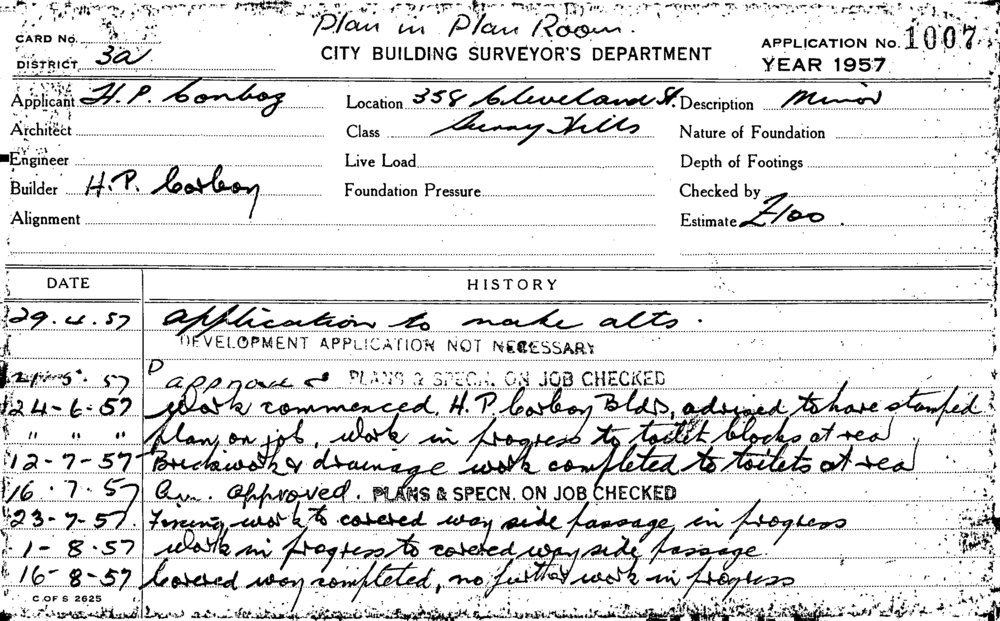 Plan in Plan Room.
CARD No.
CITY BUILDING SURVEYOR'S DEPARTMENT
APPLICATION No. 1007
DISTRICT 3a
YEAR 1957
Applicant H. P. Corboy Location 358 Cleveland St. Description Minor
Architect Class Surry Hills Nature of Foundation
Engineer Live Load Depth of Footings
Builder H. P. Corboy Foundation Pressure Checked by
Alignment Estimate £100.
DATE HISTORY
29.4.57 Application to make alts.
DEVELOPMENT APPLICATION NOT NECESSARY
5. 57 Approved PLANS & SPECN. ON JOB CHECKED
24-6-57 Work commenced. H. P. Corboy Bldr, advised to have stamped
" " " plan, on job, work in progress to toilet blocks at rear
12-7-57 Brickwork & drainage work completed to toilets at rear
16.7.57 Am. Approved. PLANS & SPECN. ON JOB CHECKED
23-7-57. work to covered way side passage, in progress
1-8-57 work in progress to covered way side passage
16-8-57 Covered way completed, no further work in progress
C OF S 2625